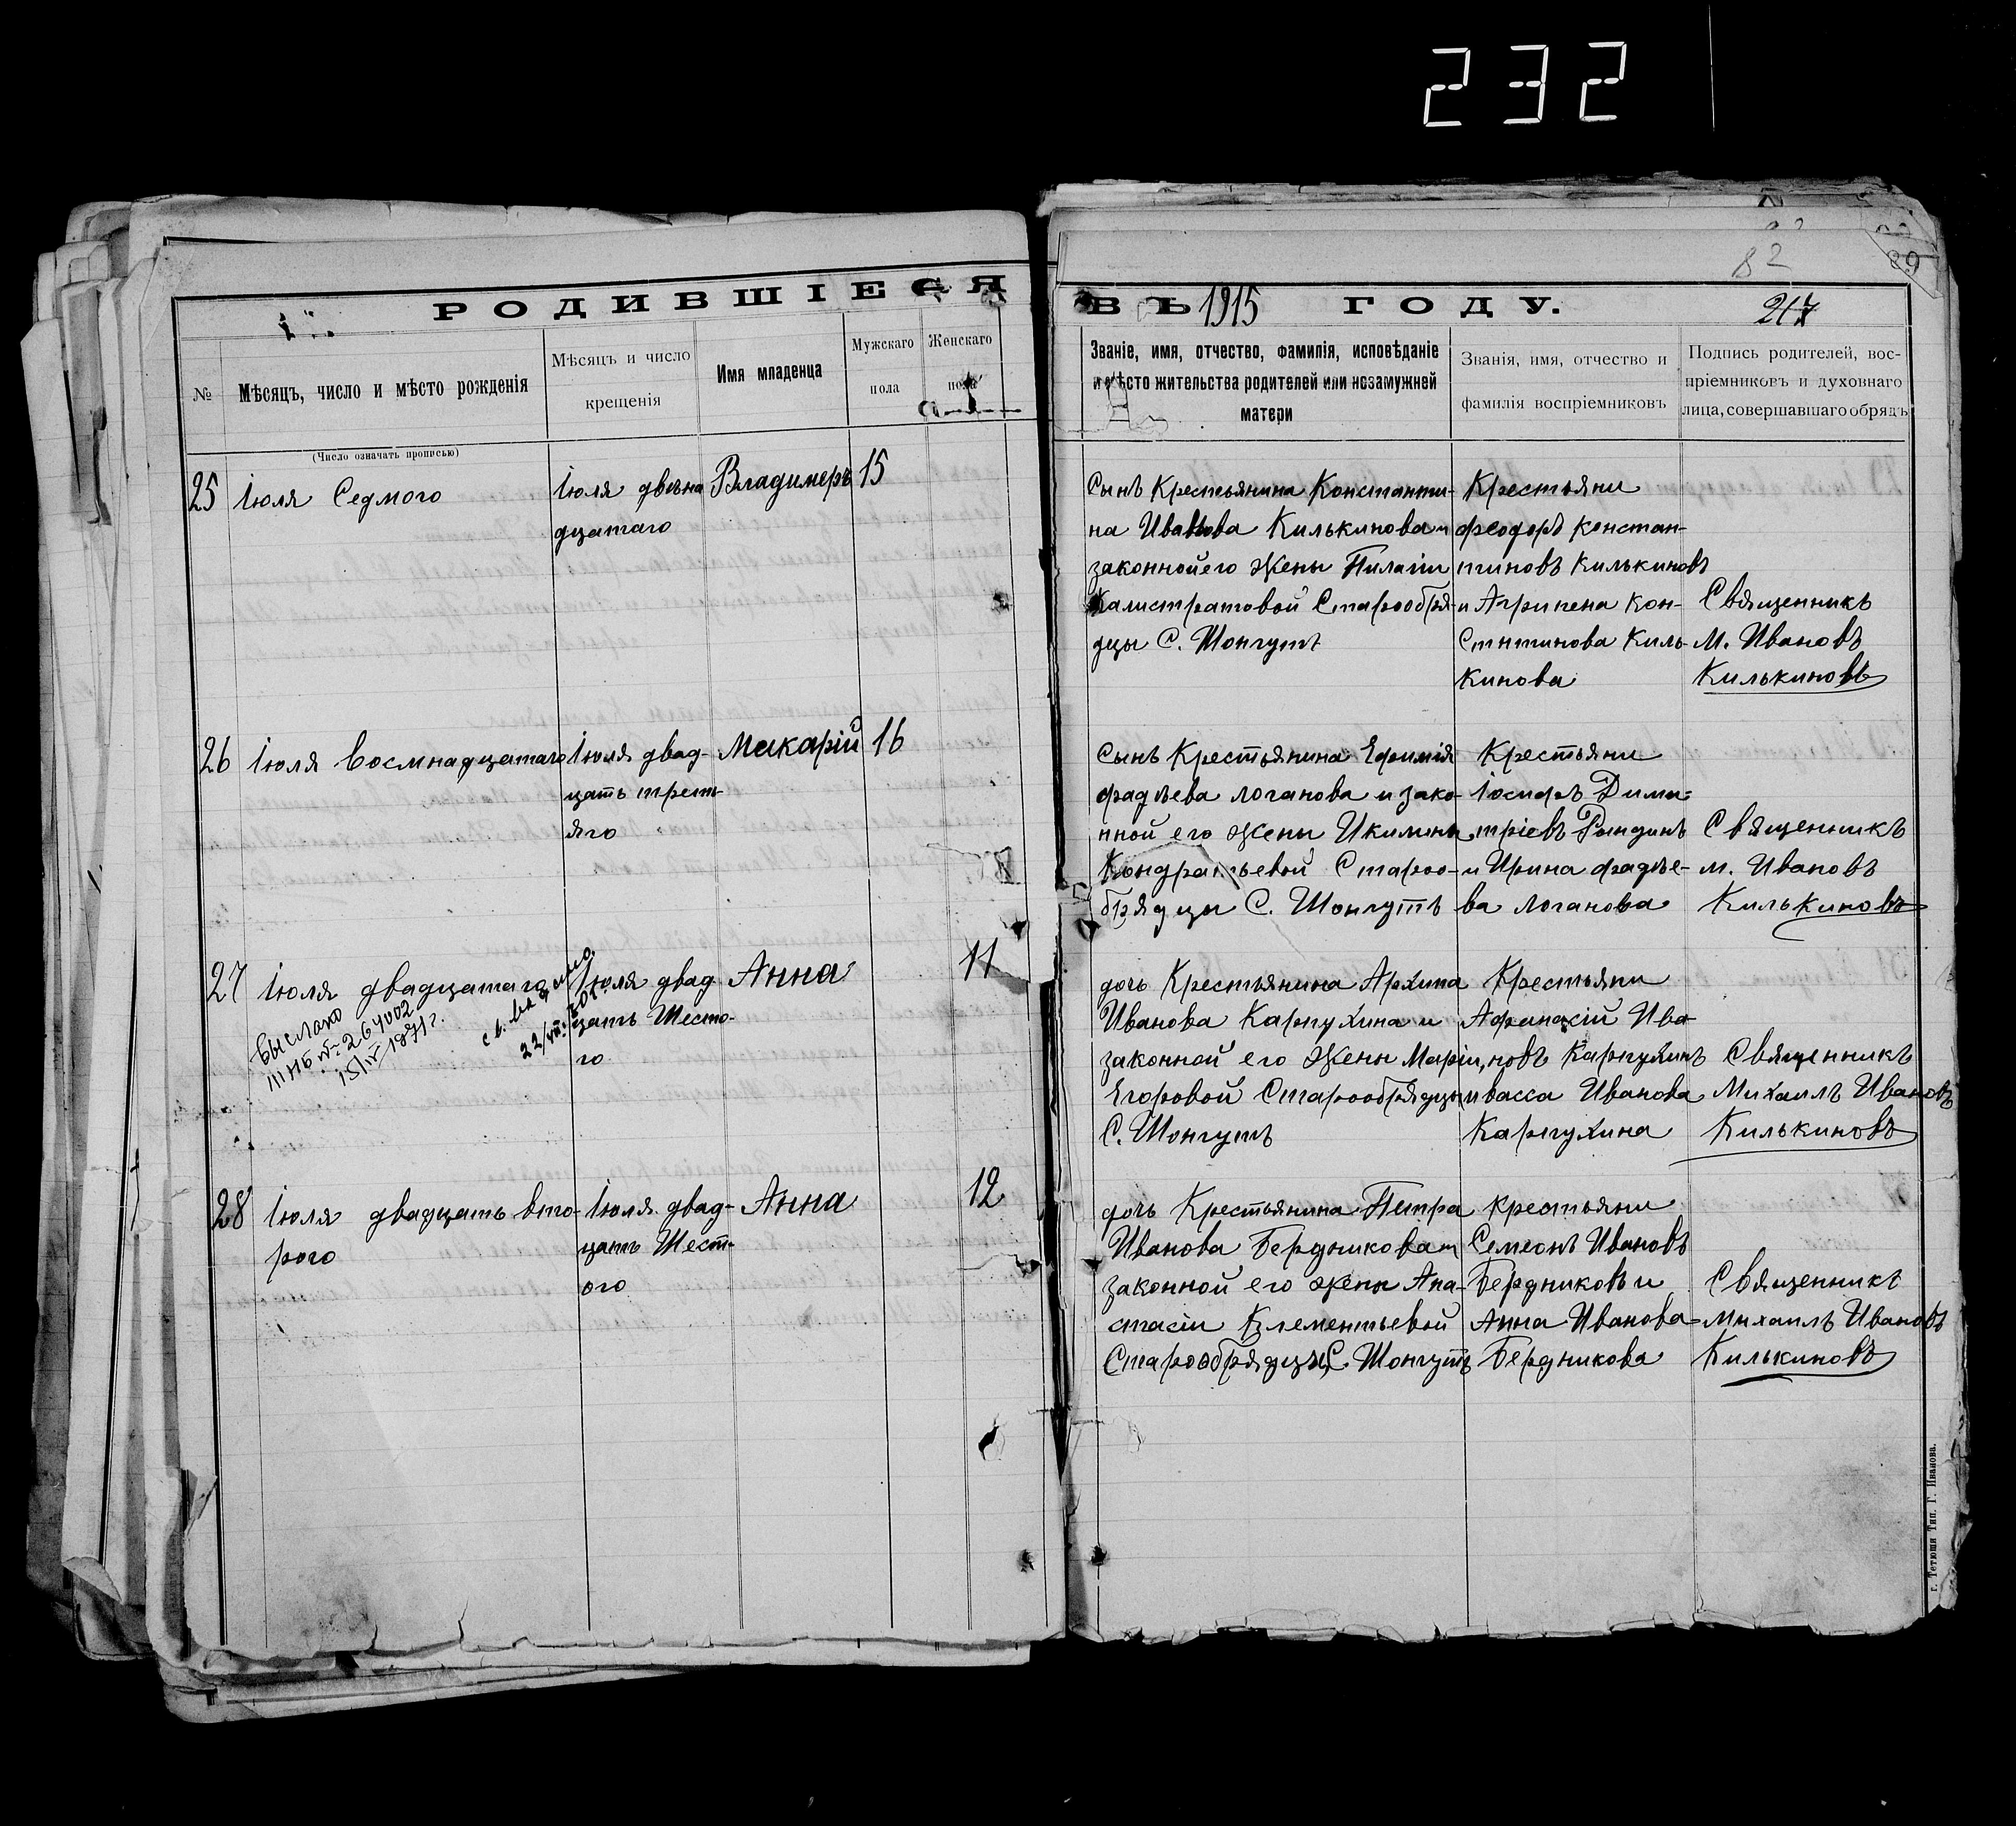 232
82
89
РОДИВШІЕСЯ ВЪ 1915 ГОДУ.
217
№
Мѣсяцъ, число и мѣсто рожденія
Мѣсяцъ и число
крещенія
Имя младенца
Мужскаго
пола
Женскаго
пола
Званіе, имя, отчество, фамилія, исповѣданіе
и мѣсто жительства родителей или незамужней
матери
Званія, имя, отчество и
фамилія воспріемниковъ
Подпись родителей, вос-
пріемниковъ и духовнаго
лица, совершавшаго обрядъ
(Число означать прописью)
25
Іюля Седмого
Іюля двѣна
дцатаго
Владимеръ
15
Сынъ Крестьянина Константи-
на Иванова Килькинова и
законной его Жены Пилагіи
Калистратовой Старообря-
дцы С. Шонгутъ
Крестьяни
феодоръ констан-
тиновъ Килькиновъ
и Агрипена Кон-
Стнтинова Киль-
кинова
Священникъ
М. Ивановъ
Килькиновъ
26
Іюля восмнадцатаго
Іюля двад-
цать треть
яго
Макарій
16
Сынъ Крестьянина Ефимія
фадѣева логанова и зако-
нной его Жены Икилины
Кондратьевой Староо-
брядцы С. Шонгутъ
Крестьяни
Іосифъ Дими-
тріевъ Рындинъ
и Ирина фадѣе-
ва логанова
Священникъ
м. Ивановъ
Килькиновъ
27
Іюля двадцатаго
выслано
№ 264002
15/IV 1971г.
Іюля двад
цать Шесто-
го
Анна
11
дочь Крестьянина Архипа
Иванова Карпухина и
законной его Жены Маріи,
Егоровой Старообрядцы
С. Шонгутъ
Крестьяни
Афанасій Ива-
новъ Карпухинъ
и васса Иванова
Карпухина
Священникъ
Михаилъ Ивановъ
Килькиновъ
28
Іюля двадцать вто-
рого
Іюля двад-
цать Шест-
ого
Анна
12
дочь Крестьянина Петра
Иванова Бердникова и
законной его жены Ана-
стасіи Клементьевой
Старообрядцы С. Шонгутъ
крестьяни
Семеонъ Ивановъ
Бердниковъ и
Анна Иванова
Бердникова
Священникъ
михаилъ Ивановъ
Килькиновъ
г. Тетюши Тип. Г. Иванова.